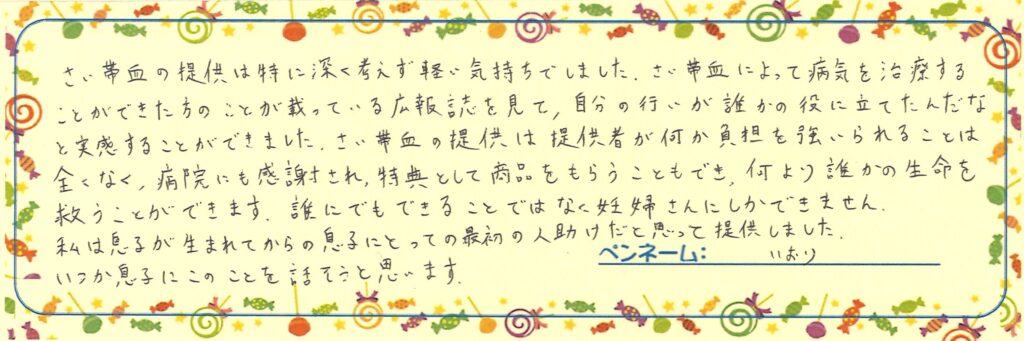 さい帯血の提供は特に深く考えず軽い気持ちでしました.さい帯血によって病気を治療する
ことができた方のことが載っている広報誌を見て,自分の行いが誰かの役に立てたんだな
と実感することができました.さい帯血の提供は提供者が何か負担を強いられることは
全くなく,病院にも感謝され,特典として商品をもらうこともでき,何より誰かの生命を
救うことができます.誰にでもできることではなく妊婦さんにしかできません.
私は息子が生まれてからの息子にとっての最初の人助けだと思って提供しました.
いつか息子にこのことを話そうと思います.
ペンネーム: いおり